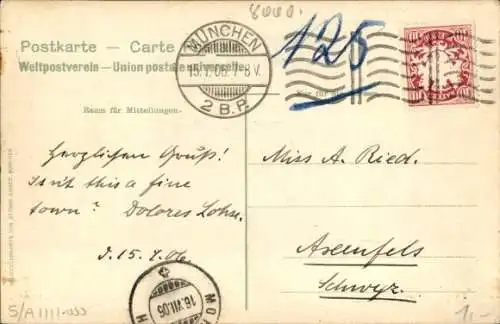 8000.
125
Postkarte — Carte
Weltpostverein — Union postale universelle
MÜNCHEN
15.7.06. 7-8 V.
2 B.P.
Raum für Mitteilungen.
Herzlichen Gruß!
Isn't this a fine
town? Dolores Lohse.
d. 15.7.06
Miss A. Ried.
Axenfels
Schwyz.
16.VII.06
5/A 1111-033
1,-